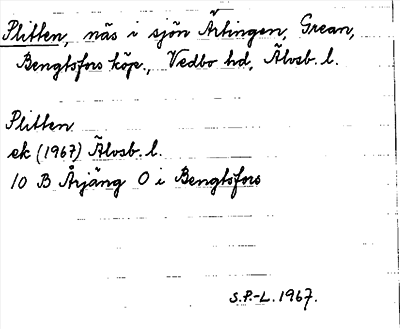 Plitten, näs i sjön Ärtingen, Grean,
Bengtsfors köp., Vedbo hd, Älvsb. l.
Plitten
ek (1967) Älvsb. l.
10 B Årjäng O i Bengtsfors
S.P.-L. 1967.